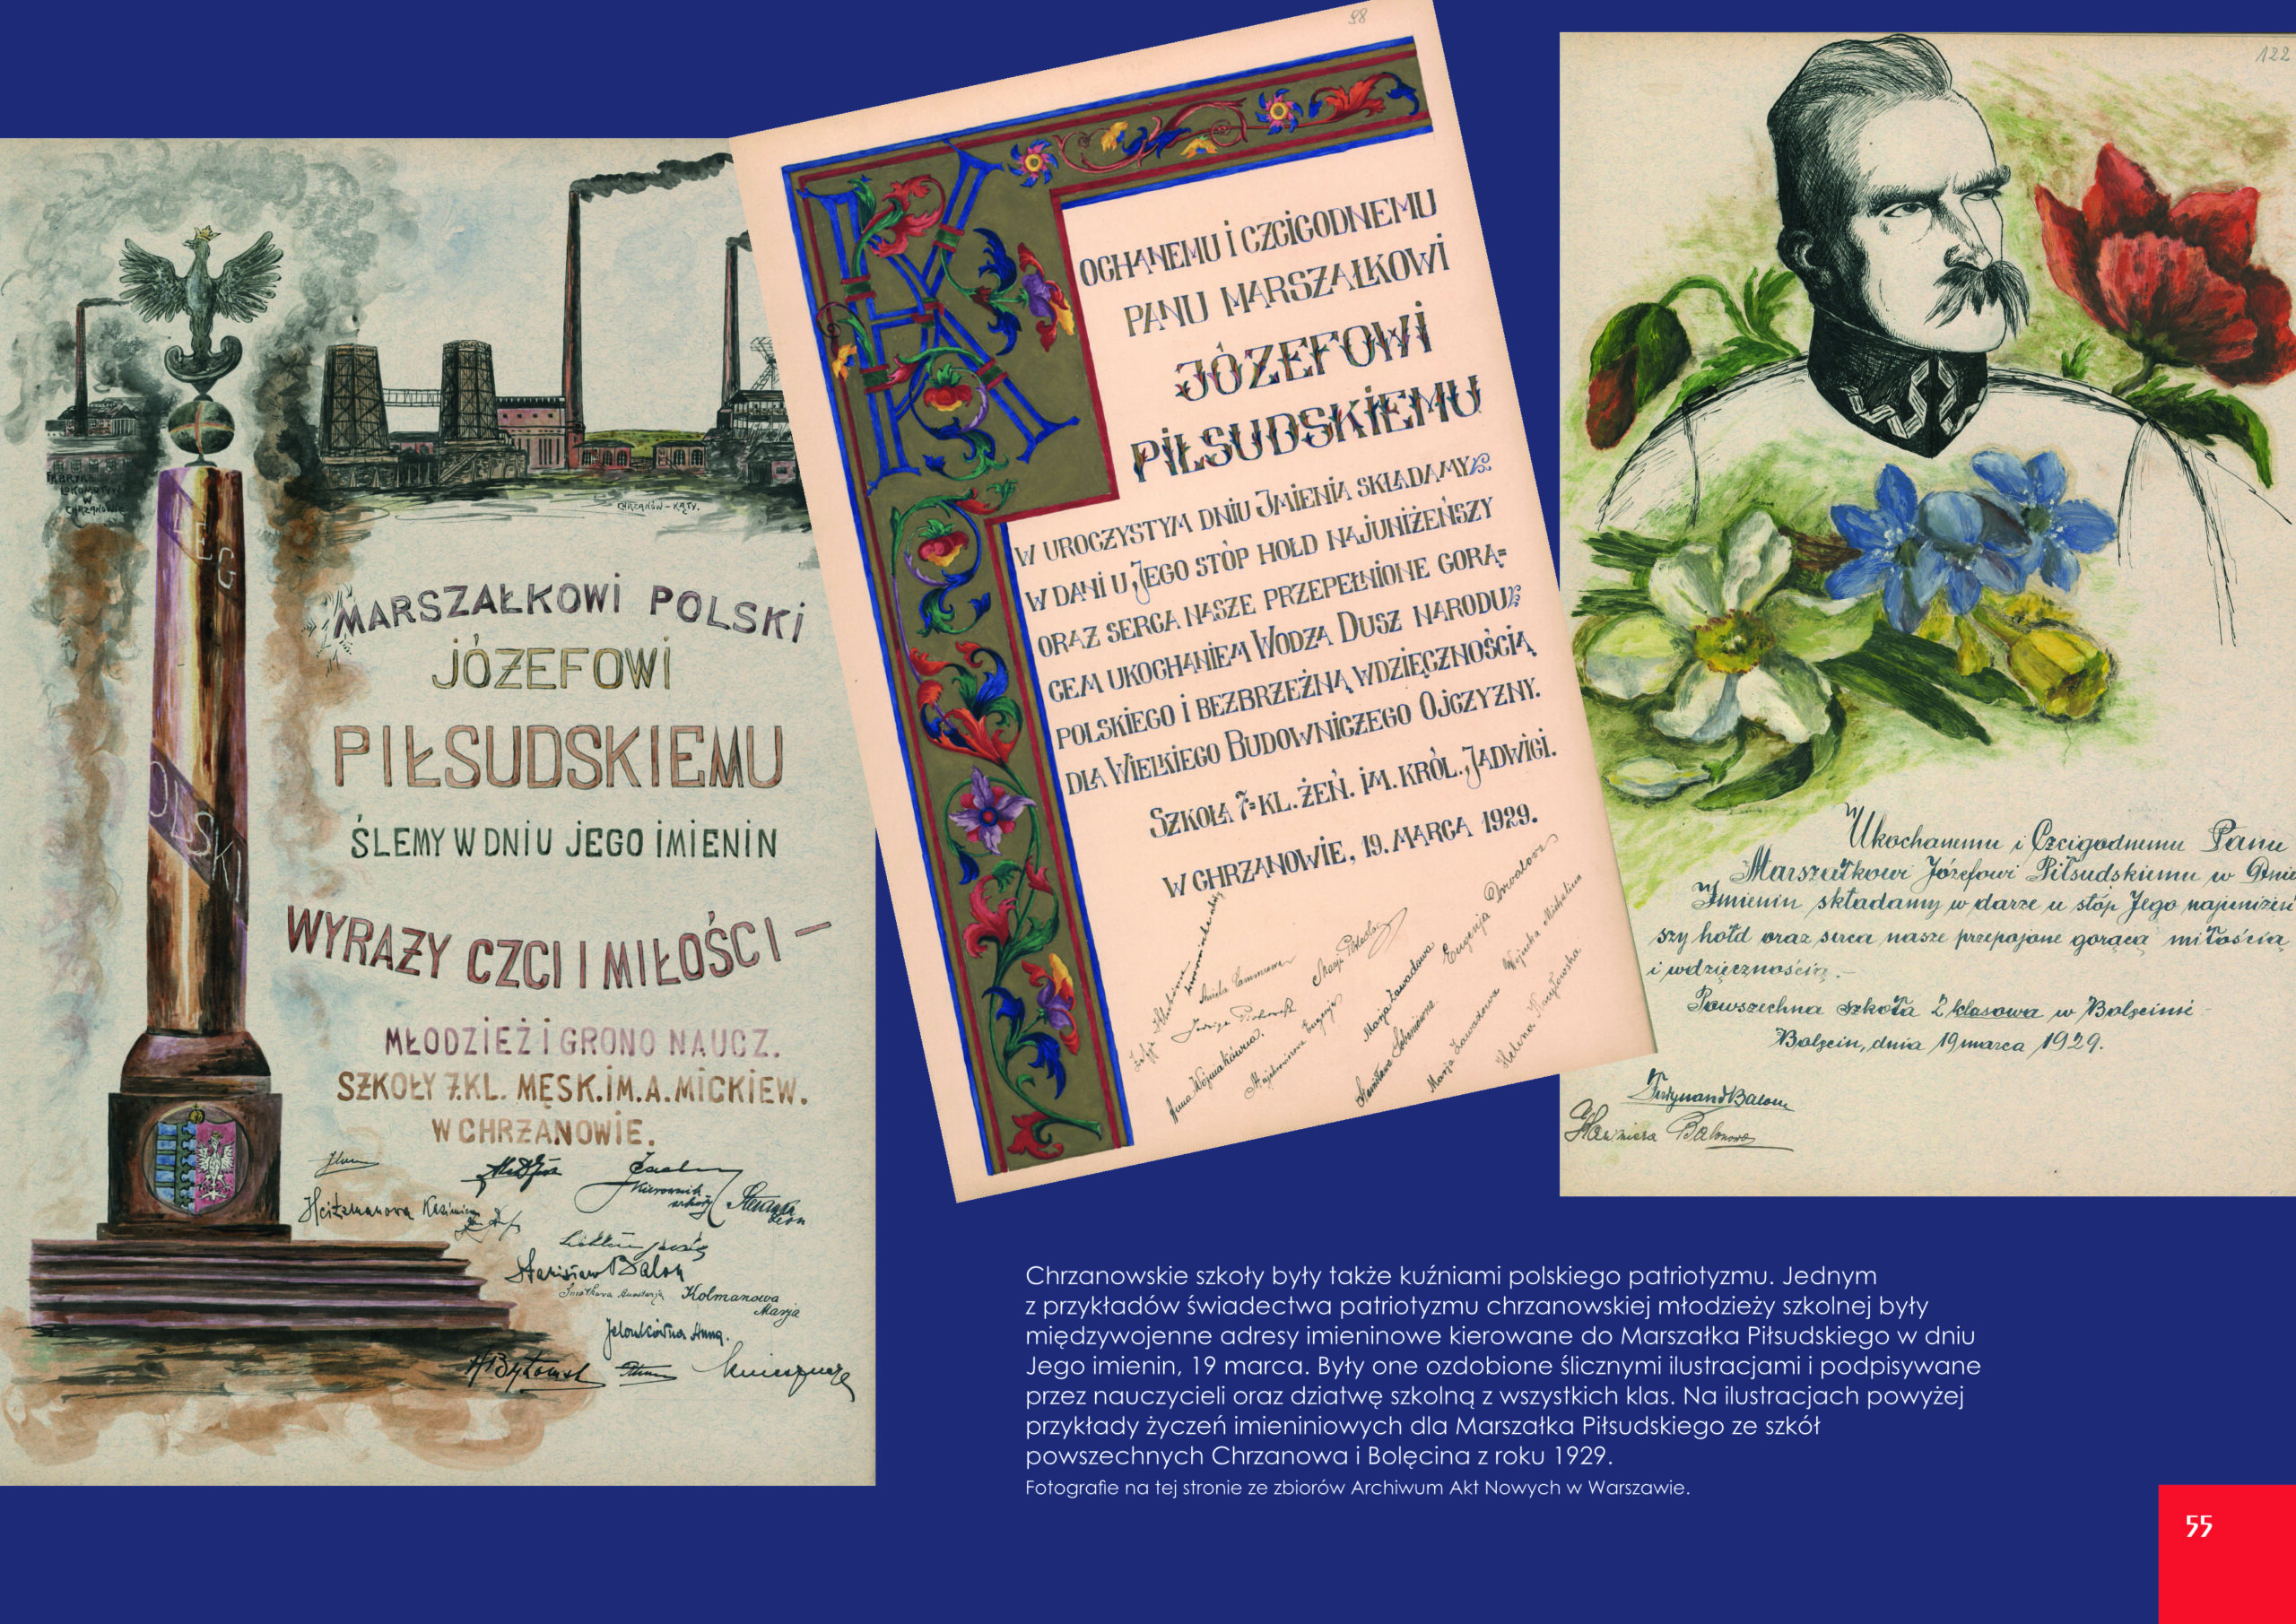 FABRYKA
LOKOMOTYW
W
CHRZANOWIE
CHRZANÓW – KĄTY.
LEG
POLSKI
MARSZAŁKOWI POLSKI
JÓZEFOWI
PIŁSUDSKIEMU
ŚLEMY W DNIU JEGO IMIENIN
WYRAZY CZCI I MIŁOŚCI –
MŁODZIEŻ I GRONO NAUCZ.
SZKOŁY 7.KL. MĘSK.IM.A.MICKIEW.
W CHRZANOWIE.
Kierownik
szkoły
Stanisław Balon
Kolmanowa
Marja
Jelonkówna Anna.
98
KOCHANEMU I CZCIGODNEMU
PANU MARSZAŁKOWI
JÓZEFOWI
PIŁSUDSKIEMU
W UROCZYSTYM DNIU IMIENIA SKŁADAMY
W DANI U JEGO STÓP HOŁD NAJUNIŻEŃSZY
ORAZ SERCA NASZE PRZEPEŁNIONE GORĄ=
CEM UKOCHANIEM WODZA DUSZ NARODU
POLSKIEGO I BEZBRZEŻNĄ WDZIĘCZNOŚCIĄ
DLA WIELKIEGO BUDOWNICZEGO OJCZYZNY.
SZKOŁA 7=KL. ŻEŃ. IM. KRÓL. JADWIGI.
W CHRZANOWIE, 19. MARCA 1929.
Anna Woźniakówna.
Marja Zawadowa
Eugenja
Marja Zawadowa
Wojnecka Michalina
Helena
122
Ukochanemu i Czcigodnemu Panu
Marszałkowi Józefowi Piłsudskiemu w Dniu
Imienin składamy w darze u stóp Jego najuniżeń
szy hołd oraz serca nasze przepojone gorącą miłością
i wdzięcznością. –
Powszechna szkoła 2 klasowa w Bolęcinie –
Bolęcin, dnia 19 marca 1929.
Ferdynand Balon
Kazimiera Balonowa
Chrzanowskie szkoły były także kuźniami polskiego patriotyzmu. Jednym
z przykładów świadectwa patriotyzmu chrzanowskiej młodzieży szkolnej były
międzywojenne adresy imieninowe kierowane do Marszałka Piłsudskiego w dniu
Jego imienin, 19 marca. Były one ozdobione ślicznymi ilustracjami i podpisywane
przez nauczycieli oraz dziatwę szkolną z wszystkich klas. Na ilustracjach powyżej
przykłady życzeń imieniniowych dla Marszałka Piłsudskiego ze szkół
powszechnych Chrzanowa i Bolęcina z roku 1929.
Fotografie na tej stronie ze zbiorów Archiwum Akt Nowych w Warszawie.
55